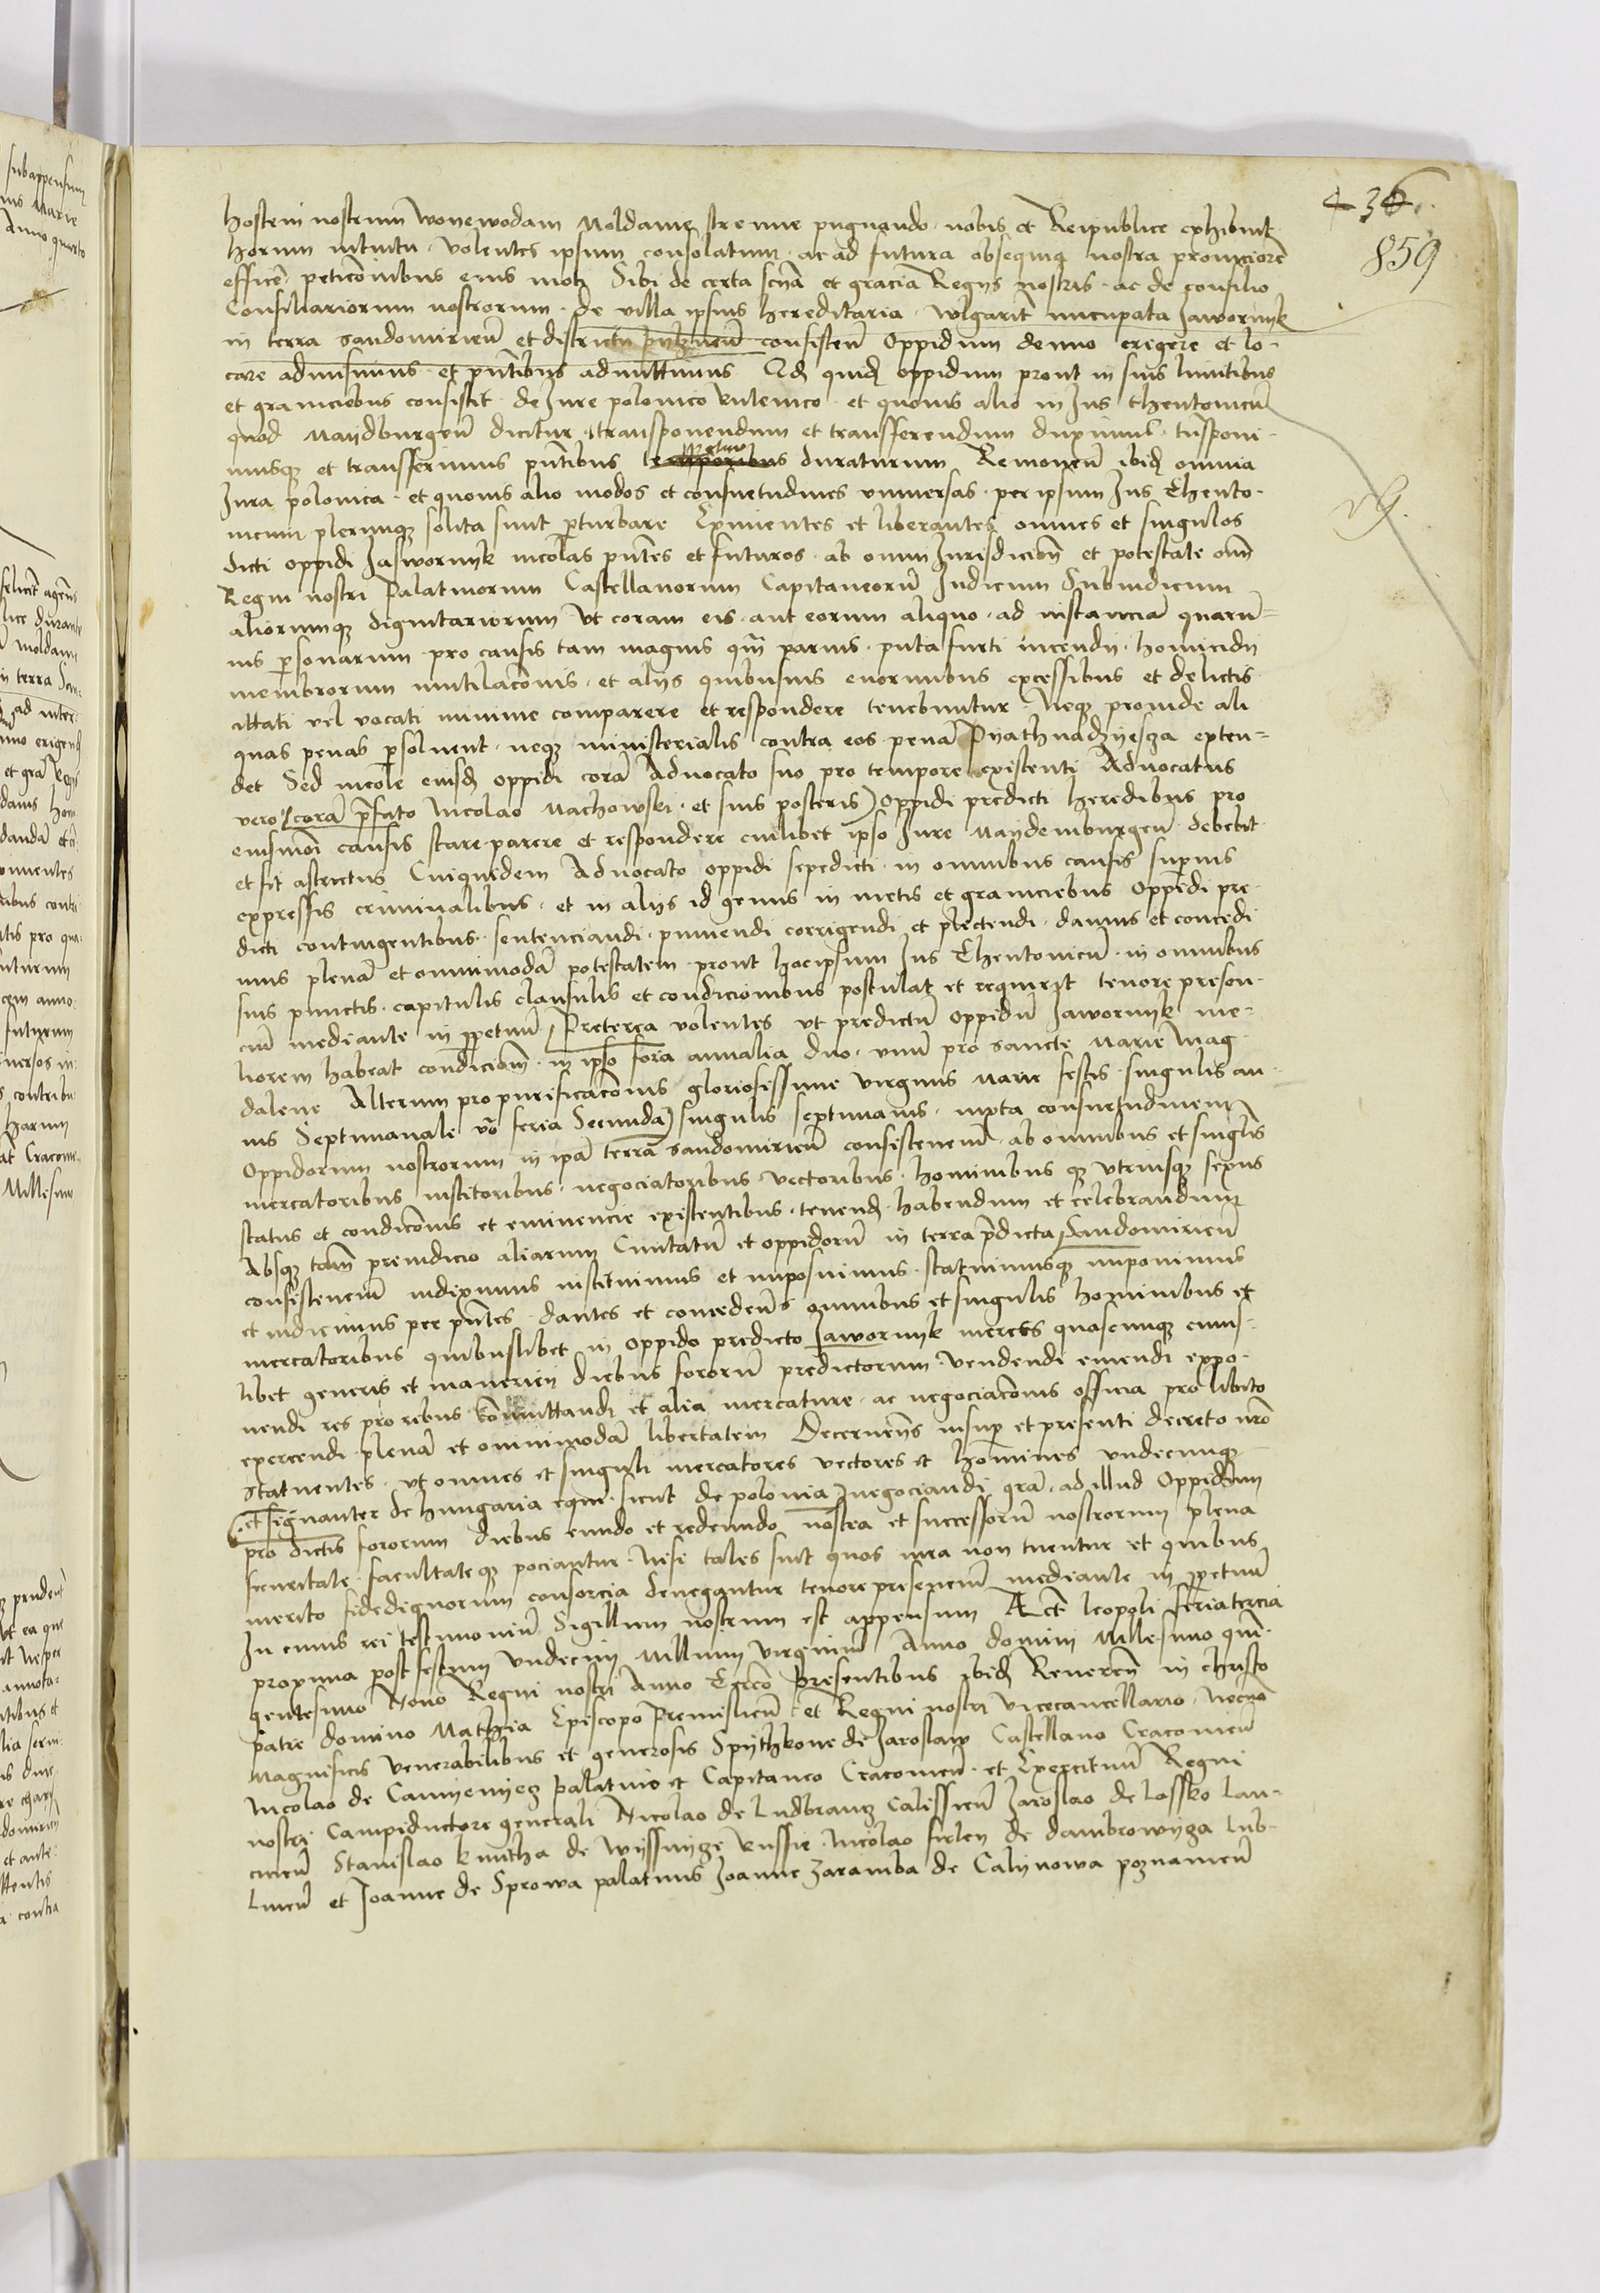 436.
859
hostem nostrum woyewodam Moldavie strenue pugnando nobis et Reipublice exhibuit
horum intuitu volentes ipsum consolatum ac ad futura obsequia nostra promciorē
efficē peticōnibus eius moti Sibi de certa scīna et gracia Regys nostris ac de consilio
Consiliariorum nostrorum de villa ipsius hereditaria wlgarit nuncupata Jawornyk
in terra sandomirien̄ et districtu pylznen̄ consisten̄ Oppidum denuo erigere et lo-
care admisimus et pn̄tibus admittimus Qd quid oppidum prout in suis limitibus
et graniciebus consistit de Jure polonico Rutenico et quovis alio in Jus thentonicū
quod Maydburgen̄ dicitur transponendum et transferendum duximus tn̄sponi-
musqz et transferimus pn̄tibus duraturum Removen̄ ibidē omnia
Jura polonica et quovis alio modos et consuetudines vniversas per ipsum Jus Thento-
nicum plerumqz solita sunt perturbare Eximentes et liberantes omnes et singulos
dicti oppidi Jaswornyk incolas pn̄tes et futuros ab omni Jurisdicionē et potestate om̄
Regni nostri Palatinorum Castellanorum Capitaneorū Judicum Subiudicum
aliorumqz dignitariorum Vt coram eis aut eorum aliquo ad instanciā quaru-
vis personarum pro causis tam magnis qm̄ parvis puta furti incendii homicidii
membrorum mutilacōnis et aliis quibusvis enormibus excessibus et delictis
citati vel vocati minime comparere et respondere tenebuntur Neqz proinde ali
quas penas persolvent neqz ministerialis contra eos penā Pyathnadzyesza exten-
det Sed incole eiusdē oppidi corā Advocato suo pro tempore existenti Advocatus
vero corā prefato Nicolao Machowski et suis posteris) oppidi predicti heredibus pro
eiusmōi causis stare parere et respondere cuilibet ipso Jure Maydemburgen̄ debebit
et sit astrictus Cuiquidem Advocato oppidi sepedicti in omnibus causis superius
expressis criminalibus et in aliis id genus in metis et graniciebus oppidi pre-
dicti contingentibus sentenciandi puniendi corrigendi et plectendi damus et concedi
mus plenā et omnimodā potestatem prout hocipsum Jus Thentonicū in omnibus
suis punctis capitulis clausulis et condicionibus postulat et requirit tenore presen-
ciū mediante in perpetuū Preterea volentes vt predictū oppidū Jawornyk me-
liorem habeat condicionē in ipso fora annalia duo vnū pro sancte Marie Mag-
dalene Alterum pro purificacōnis gloriosissime virginis Marie festis singulis an-
nis Septimanale vō feria Secunda) singulis septimanis iuxta consuetudinem
Oppidorum nostrorum in ipā terra Sandomirien̄ consistenciū ab omnibus et singlis
mercatoribus institoribus negociatoribus vectoribus hominibus qz vtriusqz sexus
status et condicōnis et eminencie existentibus tenendē habendum et celebrandum
Absqz tamē preiudicio aliarum Civitatū et oppidorū in terra predicta Sandomirien̄
consistenciū indiximus instituimus et imposuimus statuimusqz imponimus
et indicimus per pn̄tes dantes et concedentes omnibus et singulis hominibus et
mercatoribus quibuslibet in oppido predicto Jawornyk merces quascumqz cuius-
libet generis et maneriei diebus fororū predictorum vendendi emendi expo-
nendi res pro rebus commuttandi et alia mercature ac negociacōnis officia pro libito
exercendi plenā et omnimodā libertatem Decernentes insuper et presenti decreto nrō
statuentes vt omnes et singuli mercatores vectores et homines vndecunqz
et signanter de hungaria eque sicut de polonia) negociandi grā ad illud Oppidum
pro dictis fororum diebus eundo et redeundo nostra et successorū nostrorum plena
securitate facultateqz pociantur Nisi tales sint quos iura non tuentur et quibus
merito fidedignorum consorcia denegantur tenore presenciū mediante in perpetuū
In cuius rei testimoniū Sigillum nostrum est appensum Actū leopoli feria tercia
proxima post festum Vndecim Millium virginū Anno domini Millesimo quin-
gentesimo Nono Regni nostri Anno Tercō Presentibus ibidē Reverendo in christo
patre domino Mathia Episcopo Premislien̄ et Regni nostri Vicecancellario necnō
Magnificis venerabilibus et generosis Spythkone de Jaroslaw Castellano Cracovien̄
Nicolao de Camyenyecz palatino et Capitaneo Cracovien̄ et Exercituū Regni
nostri Campiductore generali Nicolao de Ludbrancz Calissien̄ Jaroslao de Lassko Lan-
cicien̄ Stanislao kmitha de Wyssnycze Russie Nicolao firley de dambrowycza Lub-
linen̄ et Joanne de Sprowa palatinis Joanne Zaramba de Calynowa poznanien̄